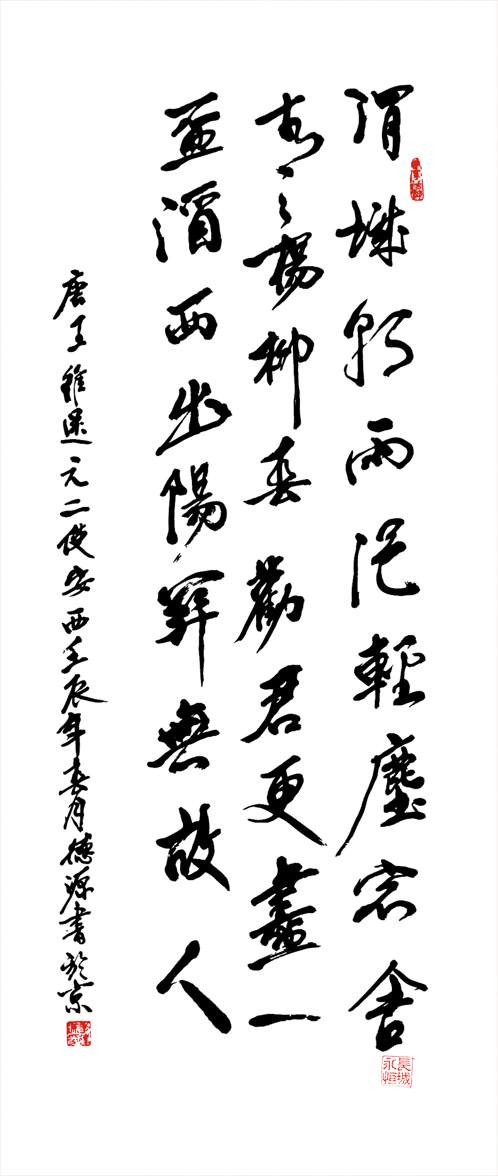 渭城朝雨浥輕塵客舍
青々楊柳春勸君更盡一
盃酒西出陽關無故人
唐王維送元二使安西壬辰年春月德源書於京
長城永恒